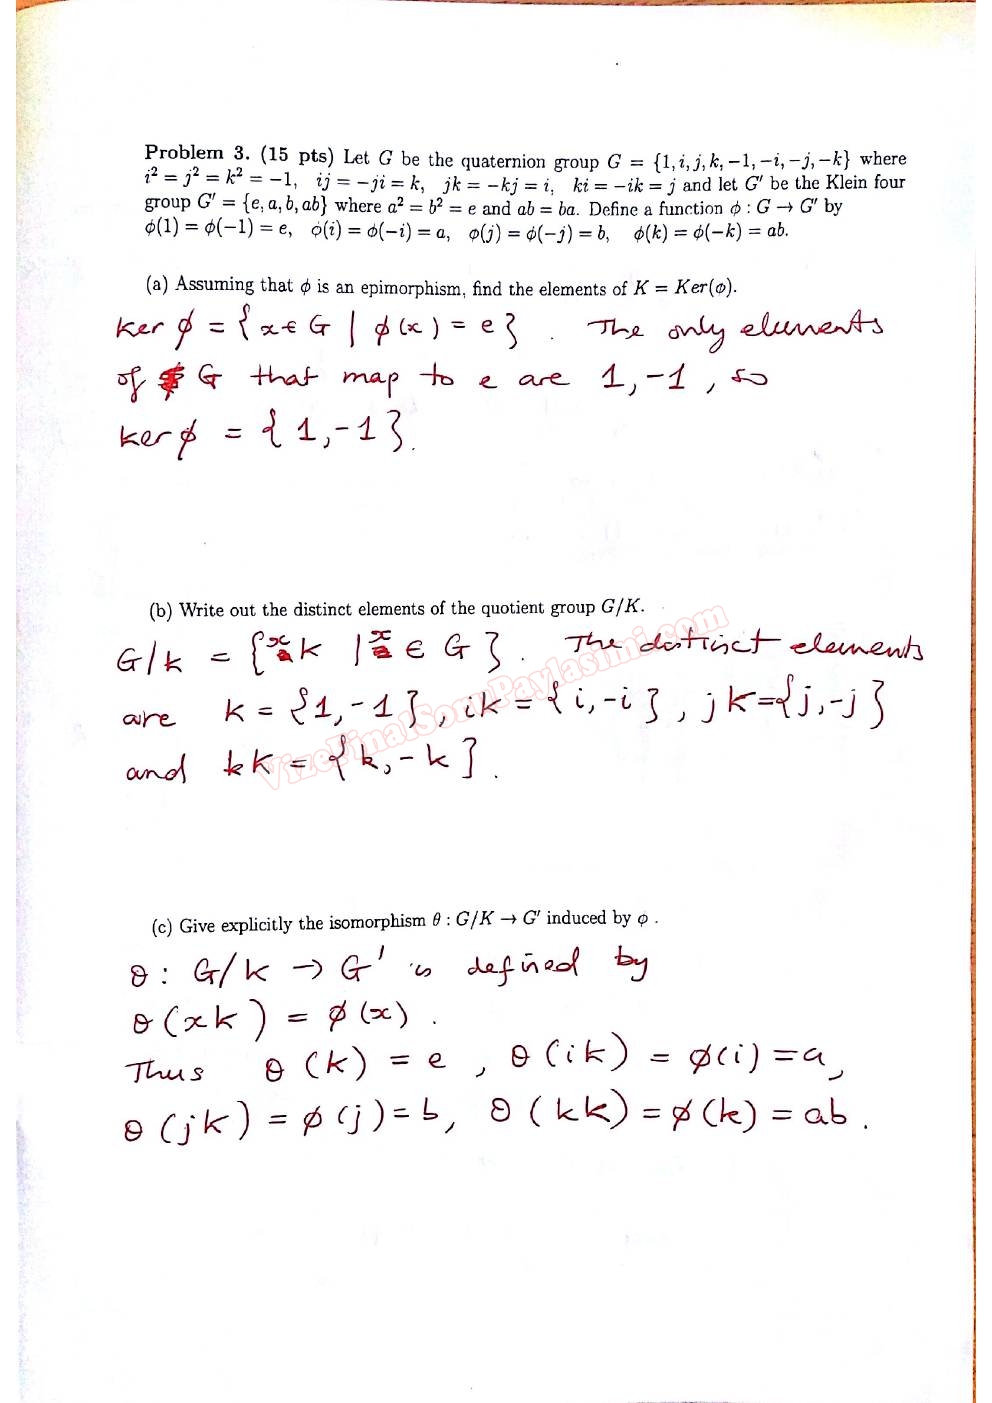 Problem 3. (15 pts) Let G be the quaternion group G = {1, i, j, k, −1, −i, −j, −k} where
i² = j² = k² = −1, ij = −ji = k, jk = −kj = i, ki = −ik = j and let G′ be the Klein four
group G′ = {e, a, b, ab} where a² = b² = e and ab = ba. Define a function ϕ : G → G′ by
ϕ(1) = ϕ(−1) = e, ϕ(i) = ϕ(−i) = a, ϕ(j) = ϕ(−j) = b, ϕ(k) = ϕ(−k) = ab.
(a) Assuming that ϕ is an epimorphism, find the elements of K = Ker(ϕ).
Ker ϕ = {x ∈ G | ϕ(x) = e}. The only elements
of G that map to e are 1, −1, so
Ker ϕ = {1, −1}.
(b) Write out the distinct elements of the quotient group G/K.
G/K = {xK | x ∈ G}. The distinct elements
are K = {1, −1}, iK = {i, −i}, jK = {j, −j}
and kK = {k, −k}.
VizeFinalSoruPaylasimi.com
(c) Give explicitly the isomorphism θ : G/K → G′ induced by ϕ .
θ : G/K → G′ is defined by
θ(xK) = ϕ(x).
Thus θ(K) = e, θ(iK) = ϕ(i) = a,
θ(jK) = ϕ(j) = b, θ(kK) = ϕ(k) = ab.